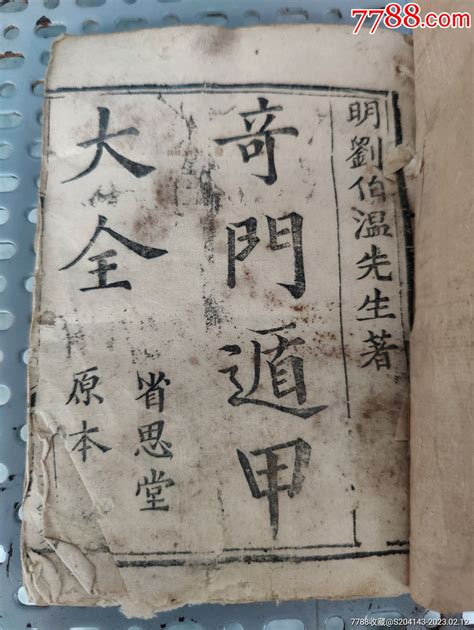 7788.com
明劉伯温先生著
奇門遁甲
大全
省思堂
原本
7788收藏@S204143-2023.02.12